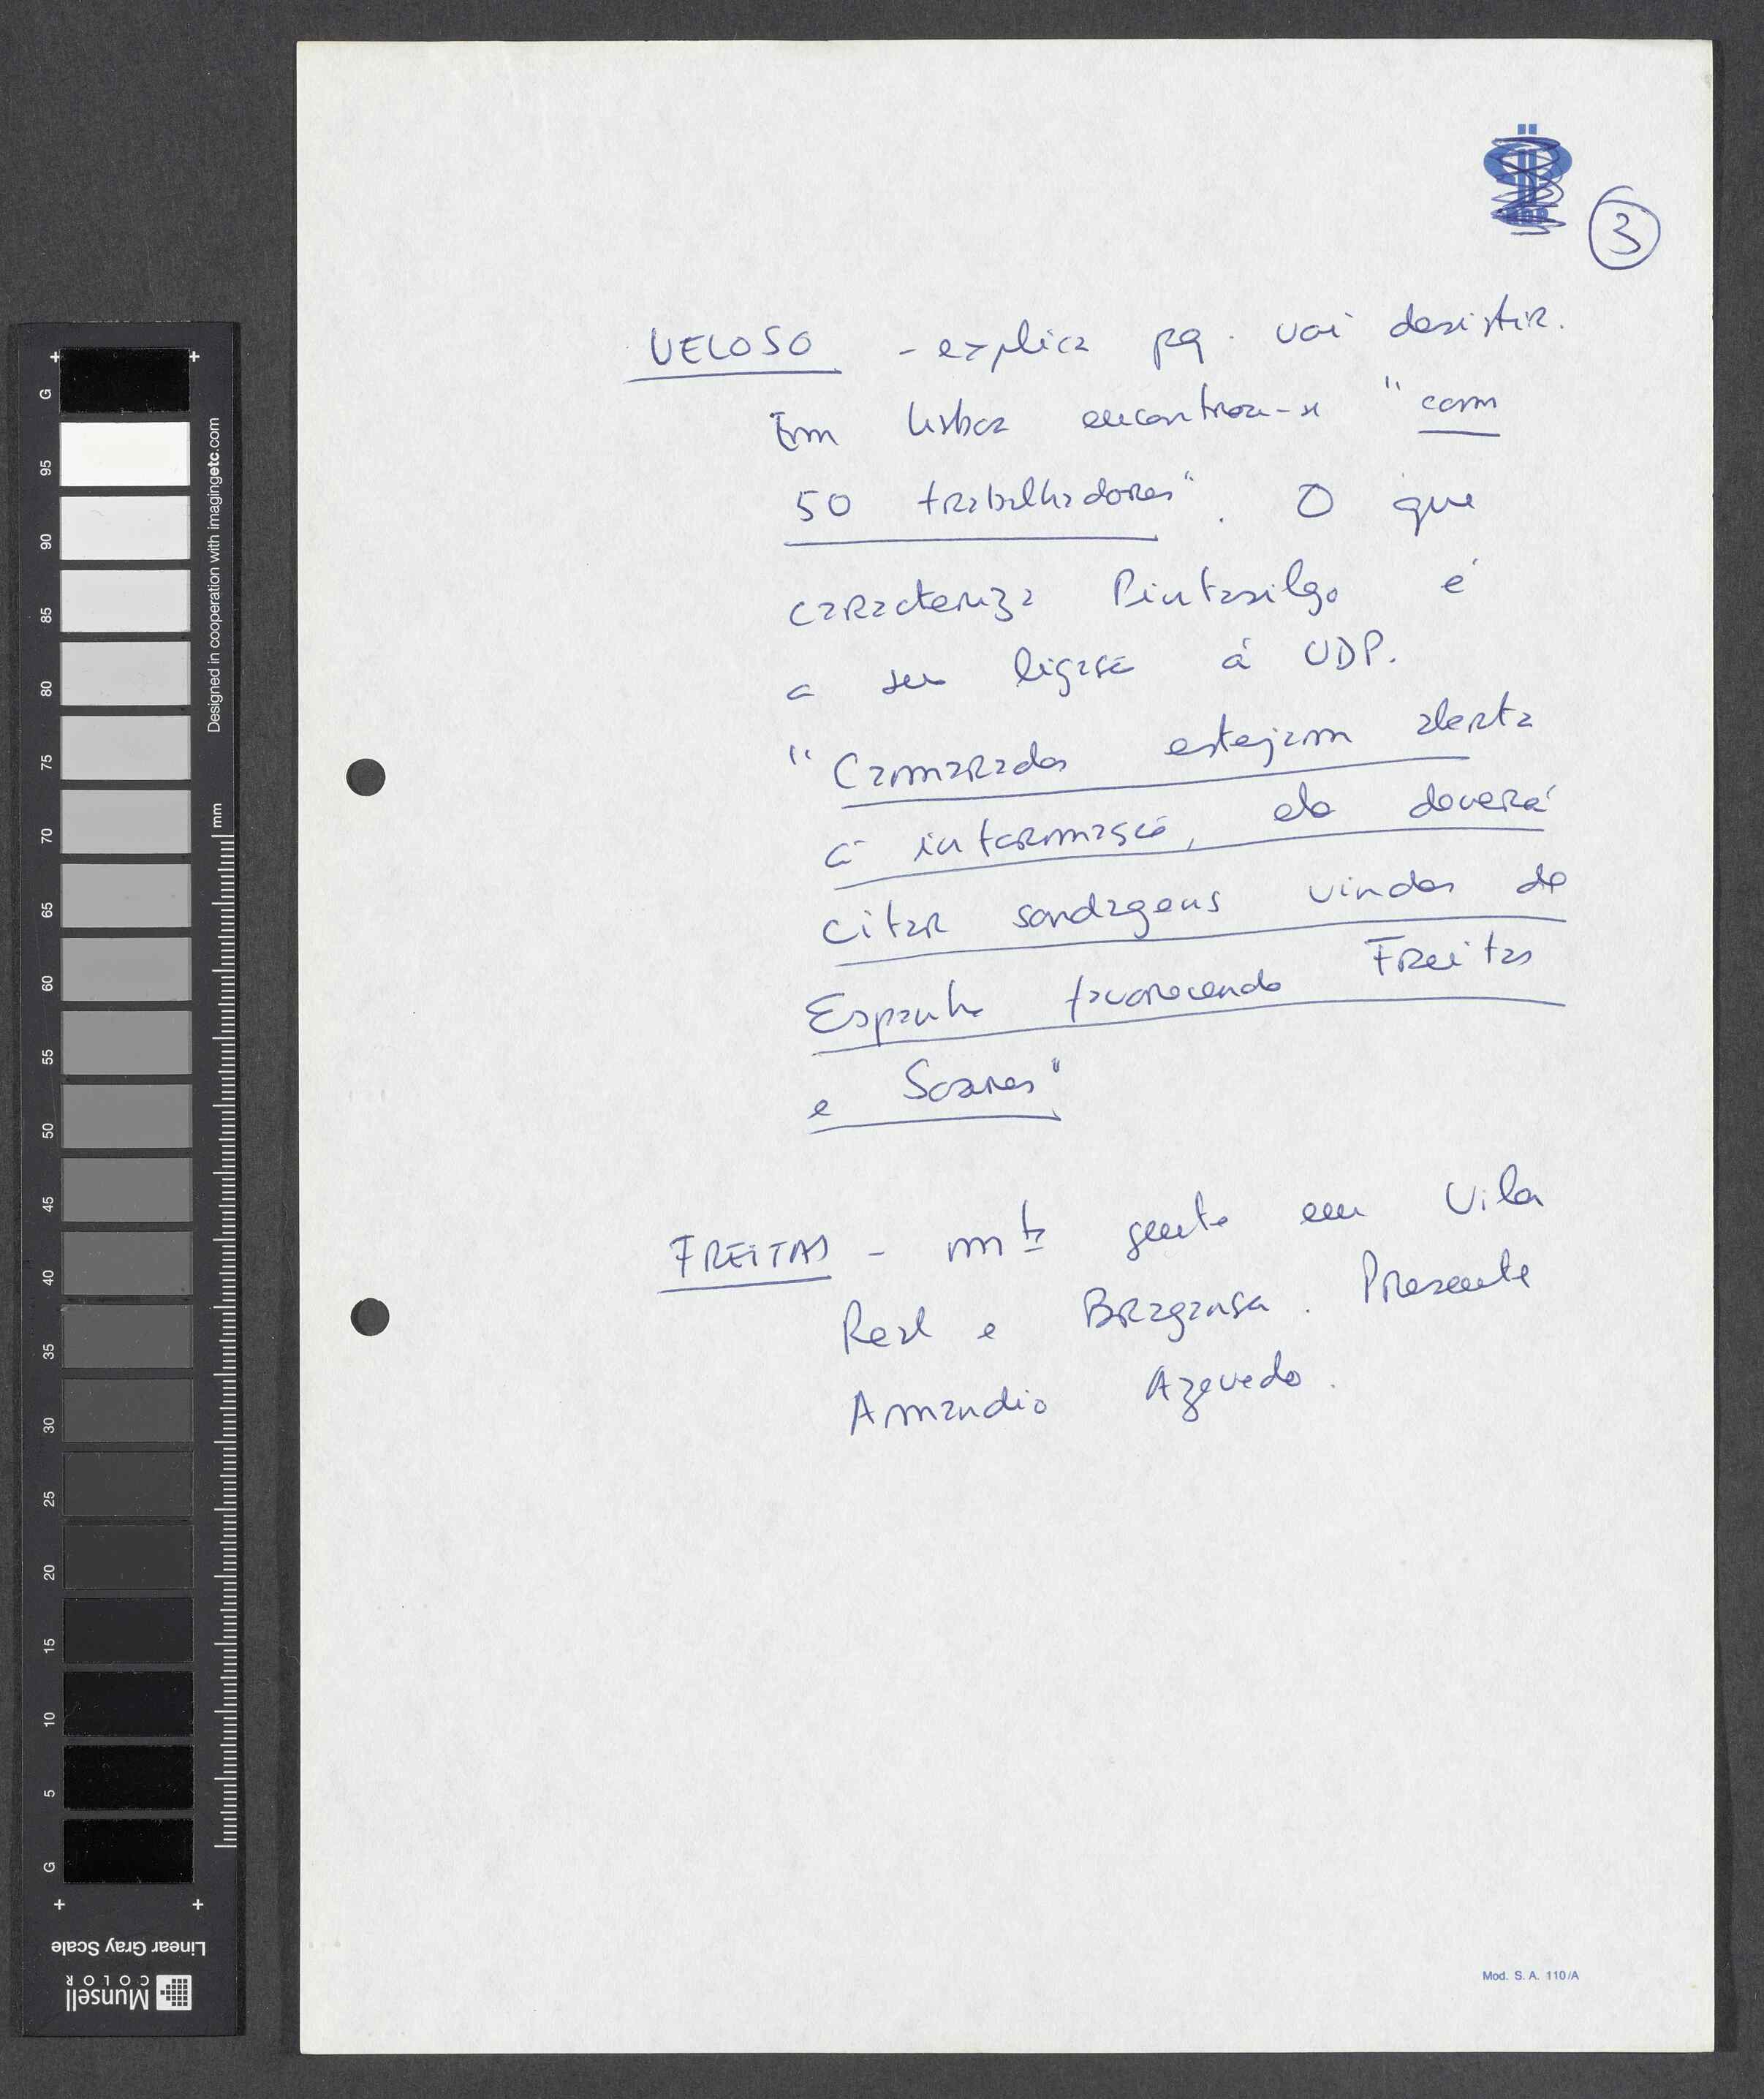 3
VELOSO - explica pq. vai desistir.
Em Lisboa encontrou-se "com
50 trabalhadores". O que
caracteriza Pintasilgo é
a sua ligação à UDP.
"Camaradas estejam alerta
à informação, ela deverá
citar sondagens vindas de
Espanha favorecendo Freitas
e Soares"
FREITAS - mta gente em Vila
Real e Bragança. Presente
Amandio Azevedo.
Mod. S. A. 110/A
+ +
G
95
90
85
80
75
70
65
60
55
50
45
40
35
30
25
20
15
10
5
G
+ +
Designed in cooperation with imagingetc.com
mm
Linear Gray Scale
Munsell
COLOR